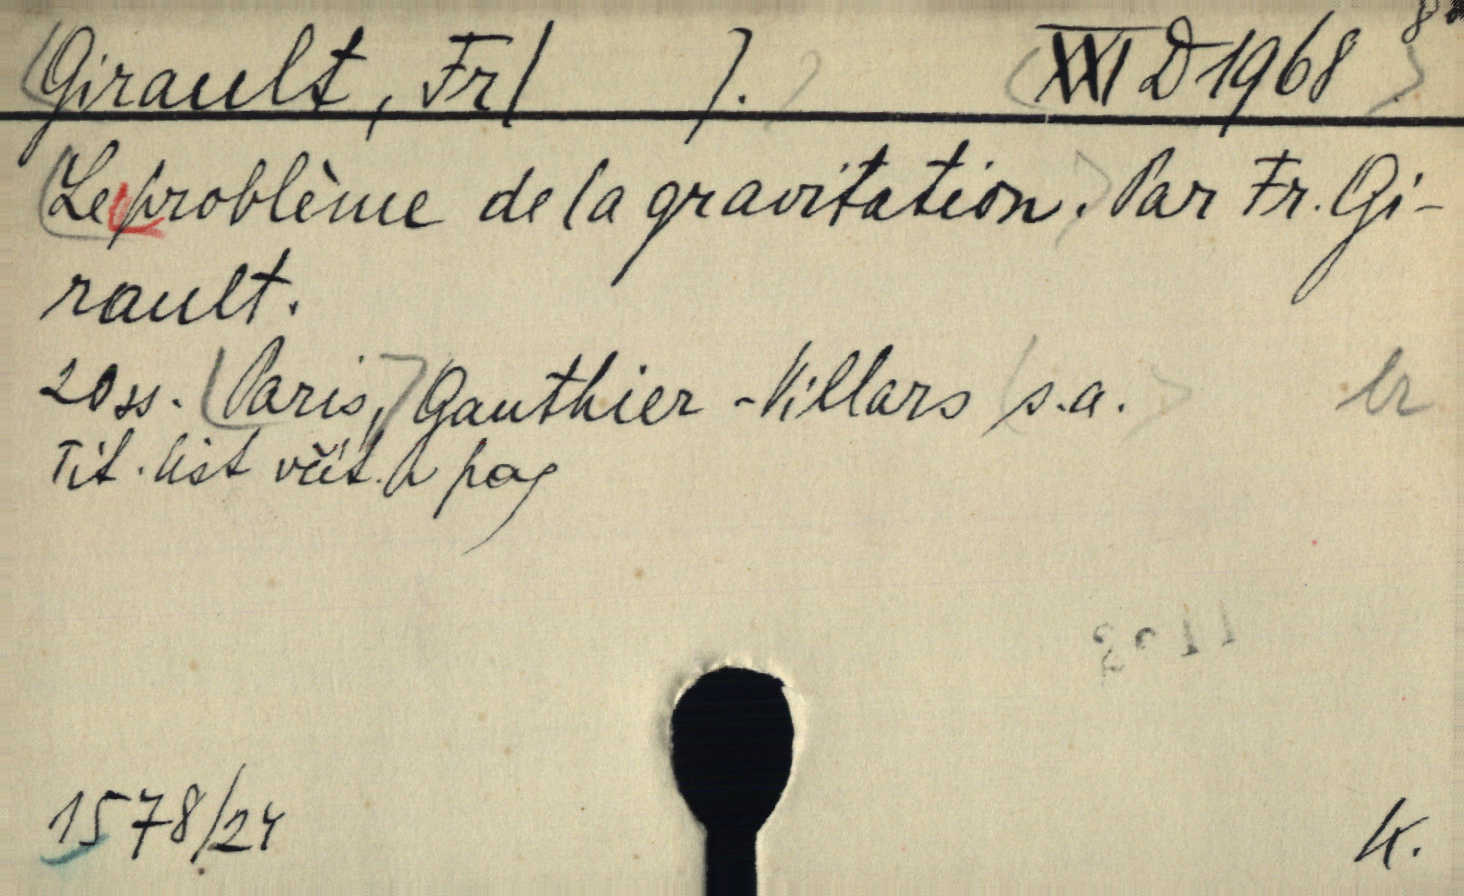 Girault, Fr( ). XXI D 1968 8°
Le problème de la gravitation. Par Fr. Gi-
rault.
20 ss. Paris, Gauthier-Villars s.a.
Tit. list včít. v pag
1578/24
K.